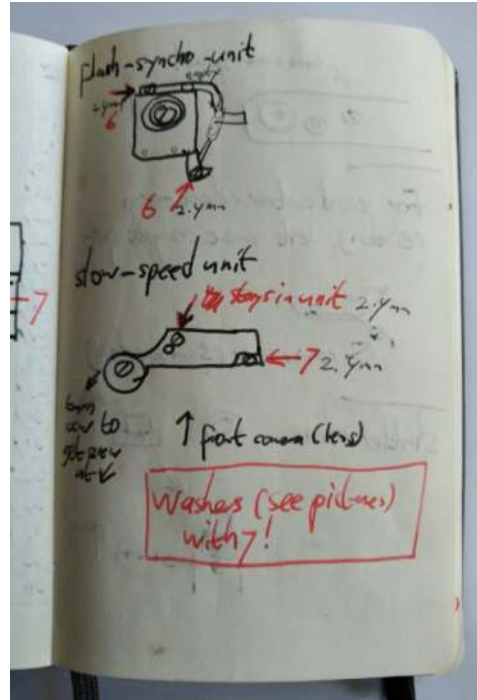 flash-syncho-unit
empty
2.4mm
6
6 2.4mm
slow-speed unit
stays in unit 2.4mm
7 2.4mm
7
turn
screw to
get screw
at
↑ front camera (lens)
Washers (see pictures)
with 7!